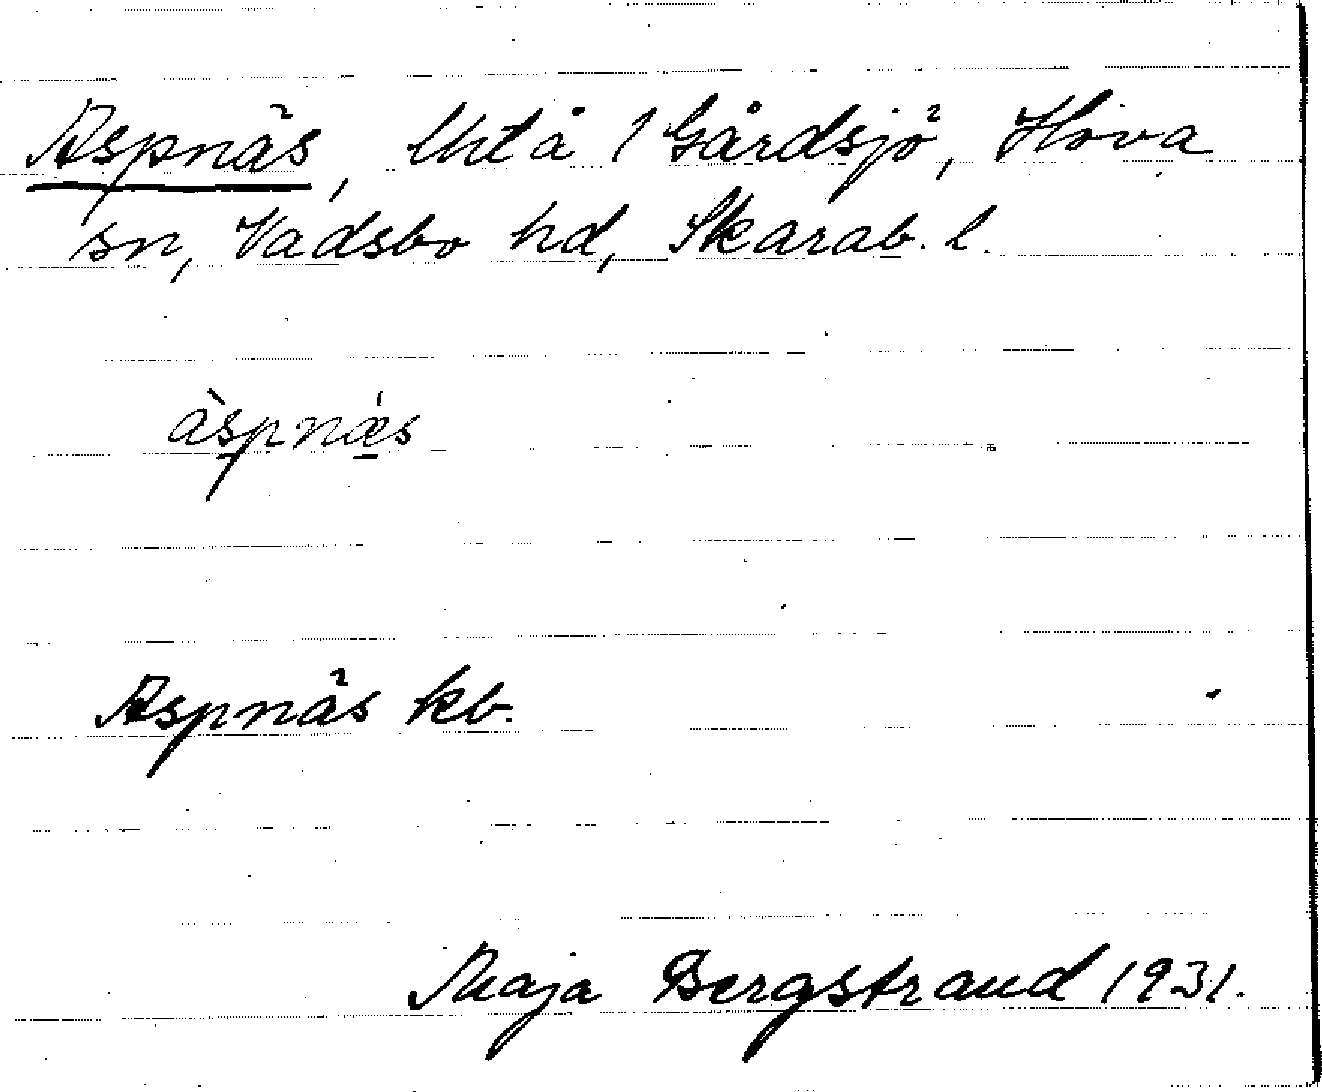 Aspnäs, lht å 1 Gårdsjö, Hova
sn, Vadsbo hd, Skarab. l.
àspnǽs
Aspnäs kb.
Maja Bergstrand 1931.